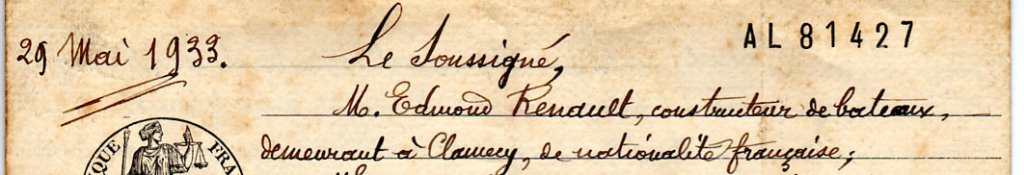 29 Mai 1933.
AL81427
Le Soussigné,
M. Edmond Renault, constructeur de bateaux,
demeurant à Clamecy, de nationalité française;
QUE FRA